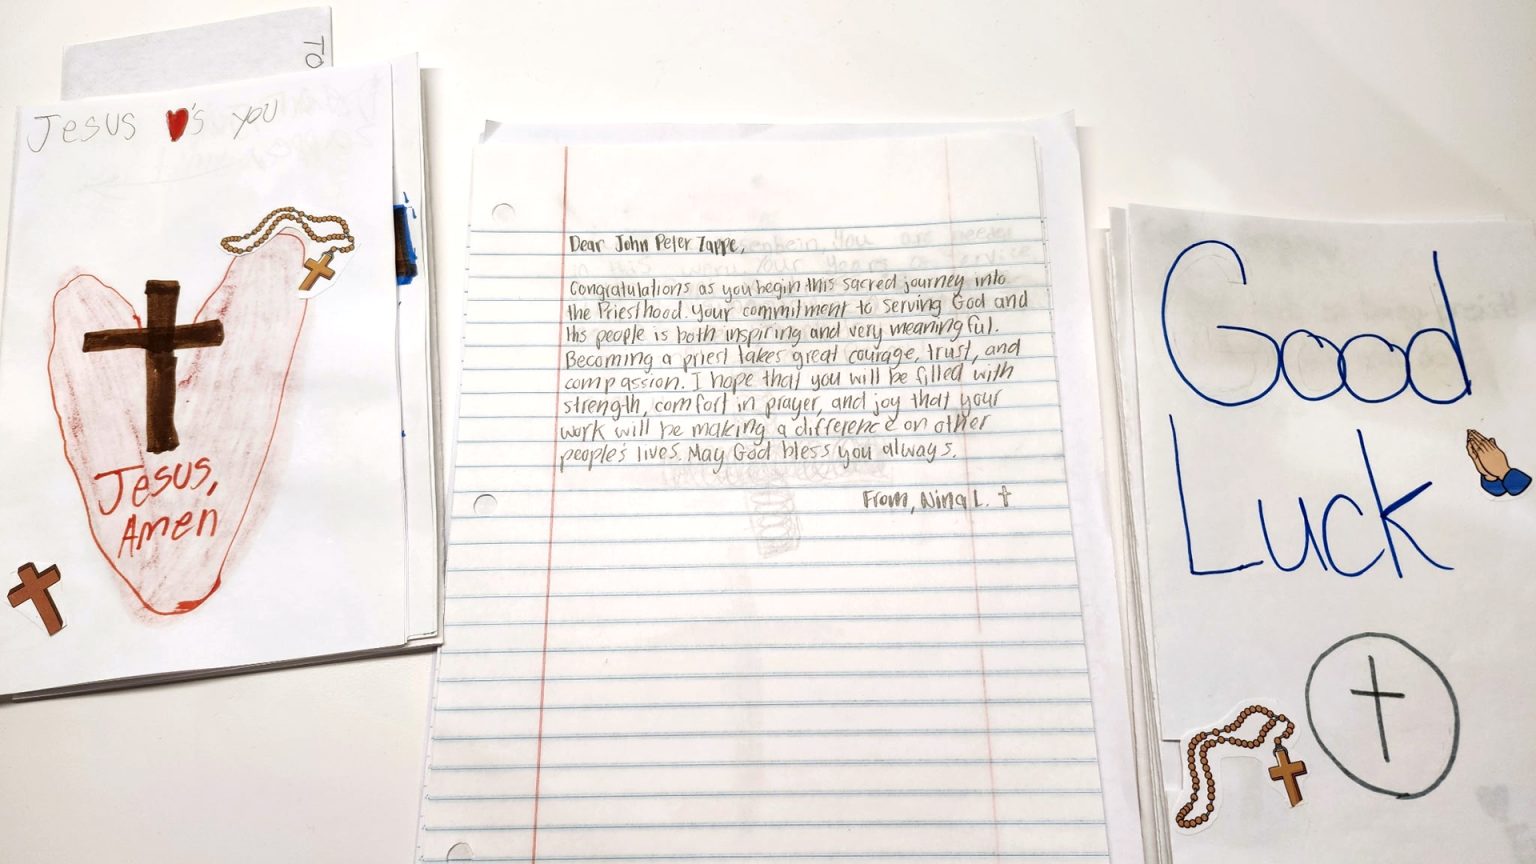 TO
Jesus ♥'s you
Jesus,
Amen
Dear John Peter Zappe,
Congratulations as you begin this sacred journey into
the Priesthood. Your commitment to serving God and
His people is both inspiring and very meaningful.
Becoming a priest takes great courage, trust, and
compassion. I hope that you will be filled with
strength, comfort in prayer, and joy that your
work will be making a difference on other
people's lives. May God bless you always.
From, Nina L. ✝
Good
Luck